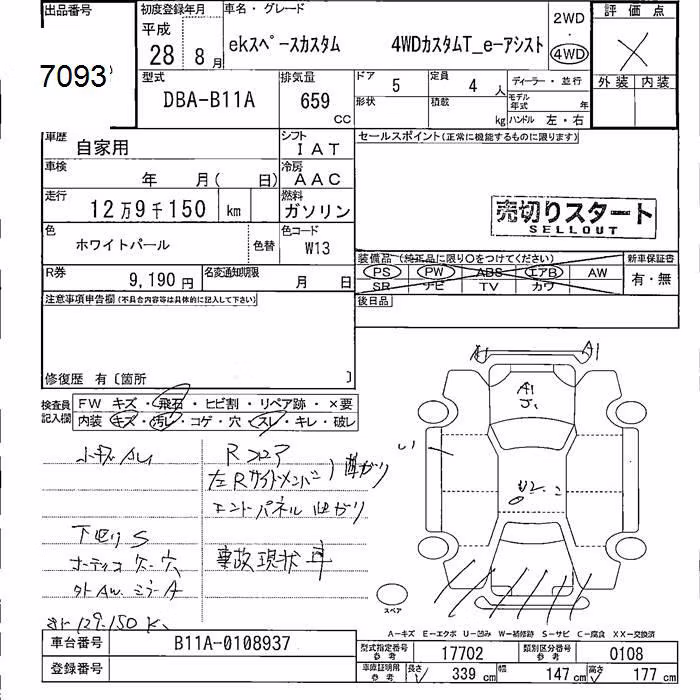 出品番号
7093
初度登録年月
平成
28 8月
車名・グレード
ekスペースカスタム 4WDカスタムT_e-アシスト
2WD
・
4WD
評価点
X
外装 内装
型式
DBA-B11A
排気量
659
cc
ドア 5
形状
定員 4 人
積載 kg
ディーラー・並行
モデル年式 年
ハンドル 左・右
車歴 自家用
シフト IAT
車検 年 月( 日)
冷房 AAC
走行 12万9千150 km
燃料 ガソリン
色 ホワイトパール 色替
色コード W13
R券 9,190円
名変通知期限 月 日
セールスポイント(正常に機能するものに限ります)
売切りスタート
SELLOUT
装備品(純正品に限り○をつけてください)
新車保証書
PS PW ABS エアB AW
SR ナビ TV カワ
有・無
後日品
注意事項申告欄(不具合内容等は具体的に記入して下さい)
修復歴 有〔箇所 〕
検査員記入欄
FW キズ・飛石・ヒビ割・リペア跡・×要
内装・キズ・汚レ・コゲ・穴・スレ・キレ・破レ
Rフロア
左Rサイドメンバー 曲がり
エンドパネル 曲がり
下回りS
事故現状車
外AW ミラーA
129.150K
A1 A1
U2
スペア
A-キズ E-エクボ U-凹み W-補修跡 S-サビ C-腐食 XX-交換済
車台番号 B11A-0108937
登録番号
型式指定番号 参考 17702
類別区分番号 参考 0108
車庫証明用 参考 長さ 339 cm 幅 147 cm 高さ 177 cm